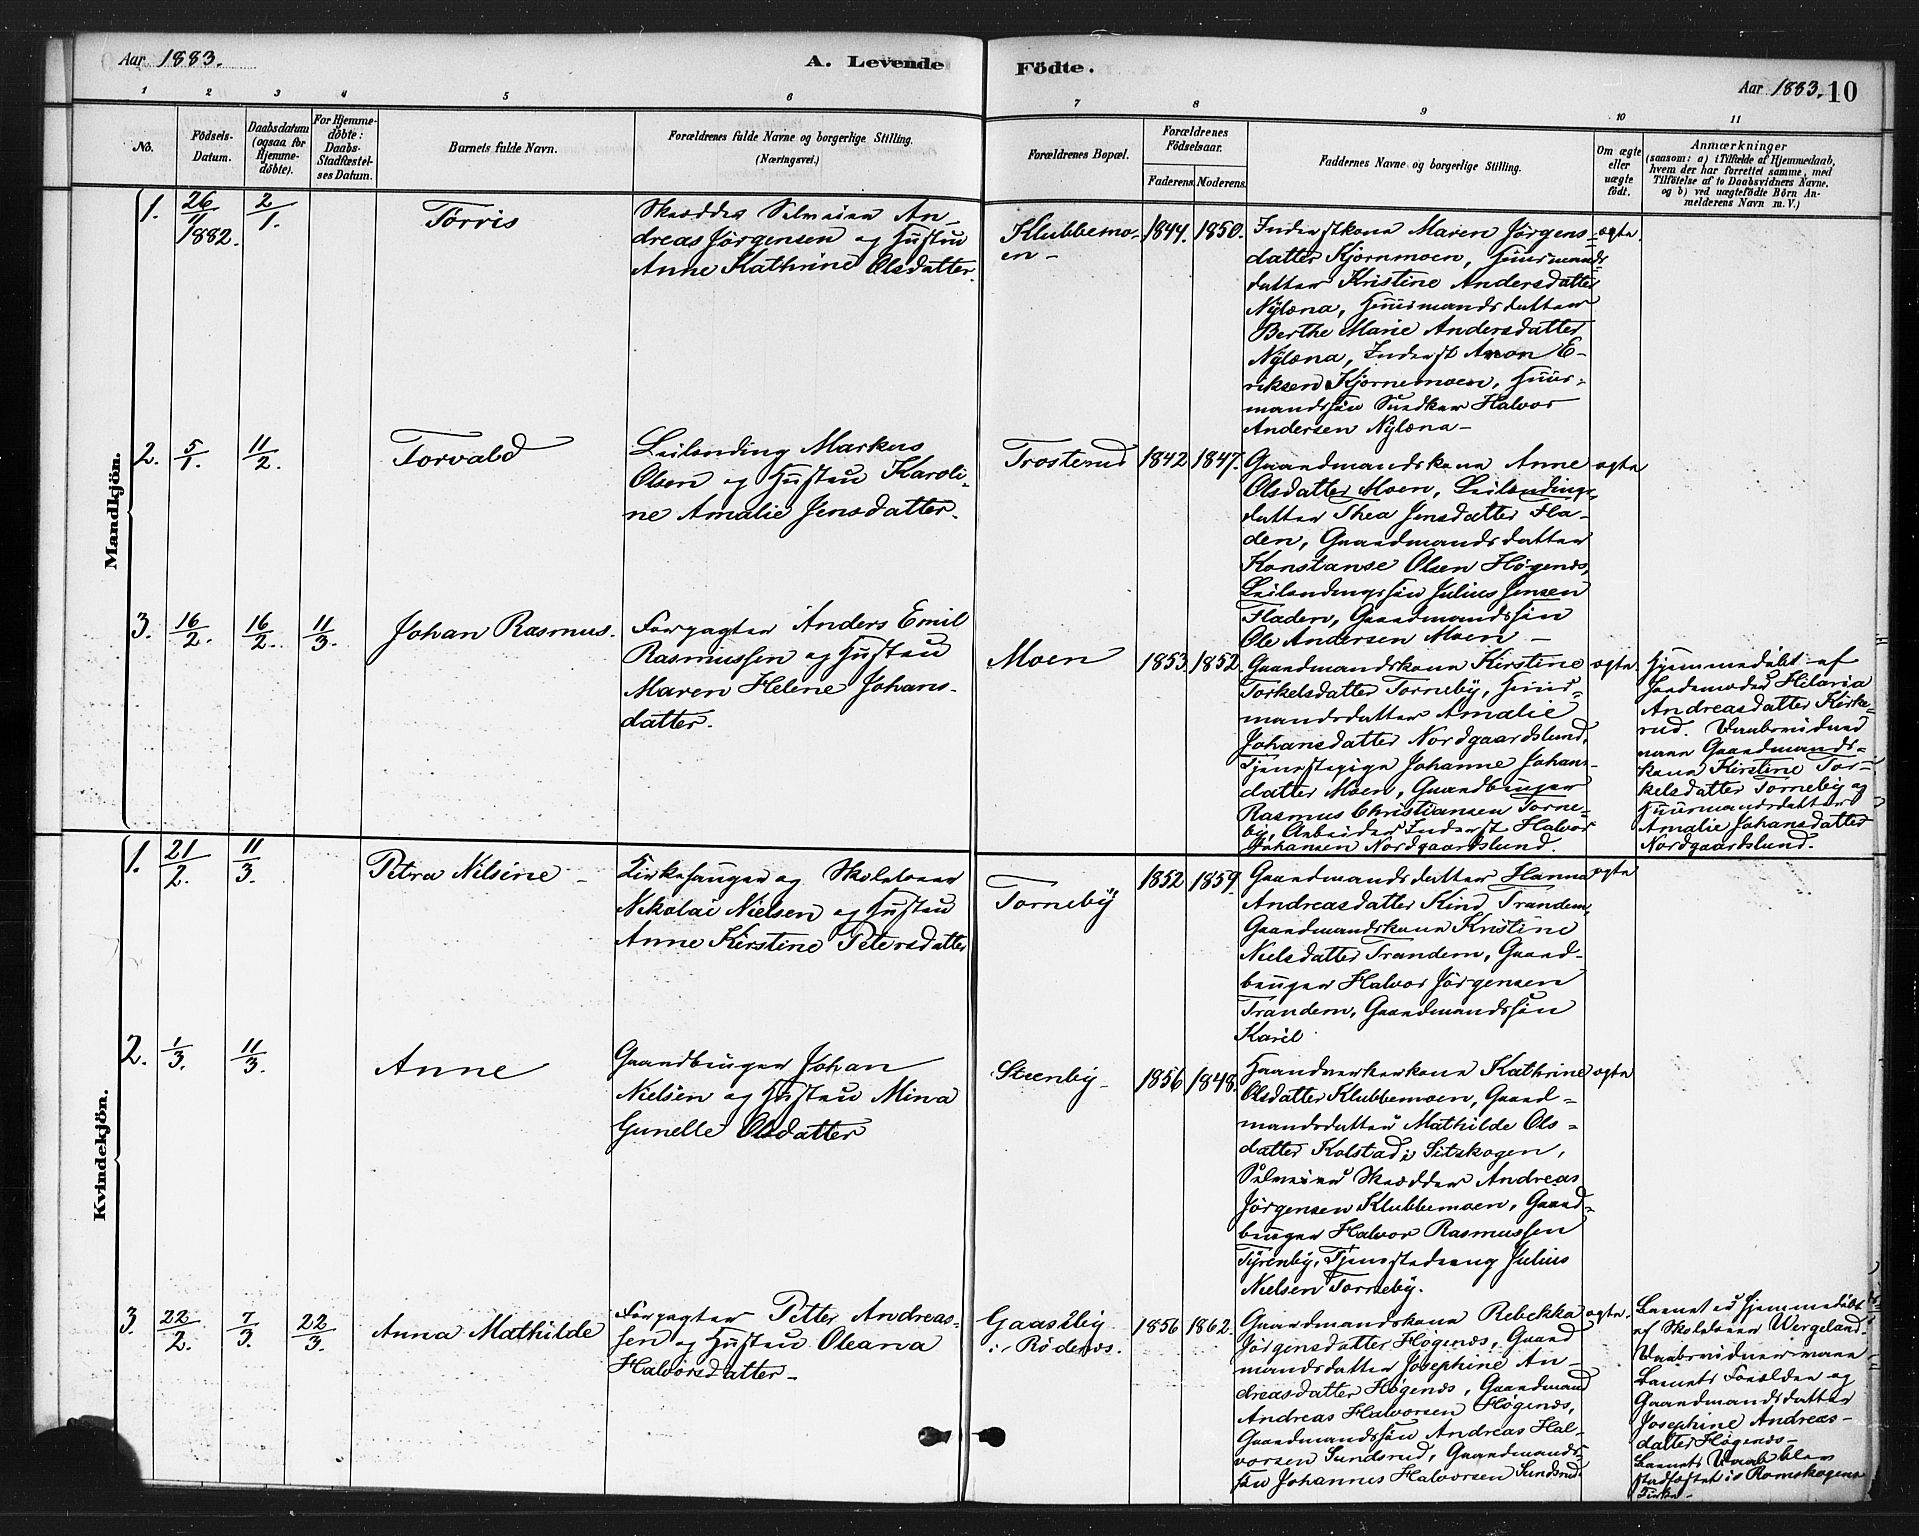 Aar 1883.
A. Levende Födte.
Aar 1883. 10
1 2 3 4 5 6 7 8 9 10 11
No.
Födsels-
Datum.
Daabsdatum
(ogsaa for
Hjemme-
döbte).
For Hjemme-
döbte:
Daabs-
Stadfæstel-
ses Datum.
Barnets fulde Navn.
Forældrenes fulde Navne og borgerlige Stilling.
(Næringsvei.)
Forældrenes Bopæl.
Forældrenes
Födselsaar.
Faderens. Moderens.
Faddernes Navne og borgerlige Stilling.
Om ægte
eller
uægte
födt.
Anmærkninger
(saasom: a) i Tilfælde af Hjemmedaab,
hvem der har forrettet samme, med
Tilföielse af to Daabsvidners Navne.
og b) ved uægtefödte Börn An-
melderens Navn m. V.)
Mandkjön.
1. 26/11 1882. 2/1.
Torvis
Skrædder Selveier An-
dreas Jørgensen og Hustru
Anne Kathrine Olsdatter.
Klubbemo-
en-
1844. 1850.
Inderstkone Maren Jørgens-
datter Kjørnmoen, Huusmands-
datter Kristine Andersdatter
Nÿlæna, Huusmandsdatter
Berthe Marie Andersdatter
Nÿlæna, Inderst Amon E-
riksen Kjørnemoen, Huus-
mandssøn Snedker Halvor
Andersen Nÿlæna-
ægte.
2. 5/1. 11/2.
Torvald
Leilending Markus
Olsen og Hustru Karoli-
ne Amalie Jensdatter.
Trosterud
1842 1847.
Gaardmandskone Anne
Olsdatter Moen, Leilendings-
datter Thea Jensdatter Fla-
den, Gaardmandsdatter
Konstanse Olsen Høgenæs,
Leilendingssøn Julius Jensen
Fladen, Gaardmandssøn
Ole Andersen Moen-
ægte
3. 16/2. 16/2. 11/3.
Johan Rasmus.
Forpagter Anders Emil
Rasmussen og Hustru
Maren Helene Johans-
datter.
Moen
1853. 1852.
Gaardmandskone Kirstine
Torkelsdatter Tornebÿ, Huus-
mandsdatter Amalie
Johansdatter Nordgaardslund,
Tjenestepige Johanne Johans-
datter Moen, Gaardbruger
Rasmus Christiansen Torne-
bÿ, Arbeider Inderst Halvor
Johansen Nordgaardslund.
ægte.
Hjemmedøbt af
Jordemoder Hilaria
Andreasdatter Kirke-
rud. Daabsvidner
vare Gaardmands-
kone Kirstine Tor-
kelsdatter Tornebÿ og
Huusmandsdatter
Amalie Johansdatter
Nordgaardslund.
Kvindekjön.
1. 21/2. 11/3.
Petra Nilsine-
Kirkesanger og Skolelærer
Nikolai Nielsen og Hustru
Anne Kirstine Petersdatter
Tornebÿ
1852 1859.
Gaardmandsdatter Hanna
Andreasdatter Kind Trandem,
Gaardmandskone Kristine
Nielsdatter Trandem, Gaard-
bruger Halvor Jørgensen
Trandem, Gaardmandssøn
Karil
ægte
2. 1/3. 11/3.
Anne
Gaardbruger Johan
Nielsen og Hustru Mina
Gunelle Olsdatter
Steenby-
1856 1848.
Haandverkerkone Kathrine
Olsdatter Klubbemoen, Gaard-
mandsdatter Mathilde Ols-
datter Kolstad i Sitskogen,
Selveier Skrædder Andreas
Jørgensen Klubbemoen, Gaard-
bruger Halvor Rasmussen
Tÿrenby, Tjenestedreng Julius
Nielsen Tornebÿ.
ægte
3. 22/2. 7/3. 22/3.
Anna Mathilde
Forpagter Petter Andreas-
sen og Hustru Oleana
Halvorsdatter-
Gaasebÿ
i Rödenæs.
1856 1862.
Gaardmandskone Rebekka
Jørgensdatter Høgenæs, Gaard
mandsdatter Josephine An-
dreasdatter Høgenæs, Gaardmand
Andreas Halvorsen Høgenæs,
Gaardmandssøn Andreas Hal-
vorsen Sundsrud, Gaardmands-
søn Johannes Halvorsen Sundsrud
ægte.
Barnet er hjemmedøbt
af Skolelærer Wergeland.
Daabsvidner vare
Barnets Forældre og
Gaardmandsdatter
Josephine Andreas-
datter Høgenæs-
Barnets Daab blev
stadfæstet i Romskogens
Kirke-